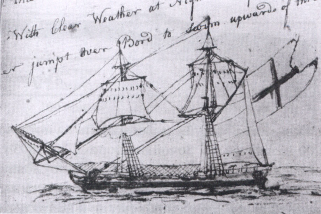 With Clear Weather at
er jumpt over Bord to swim upwards of